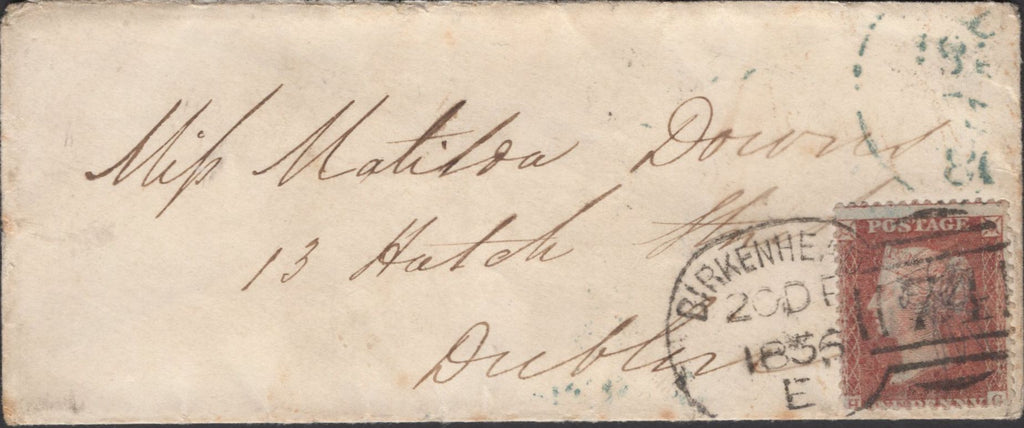 Miss Matilda Downs
13 Hatch St
Dublin
BIRKENHEA
20 DE
1856
E
POSTAGE
PENNY
H G